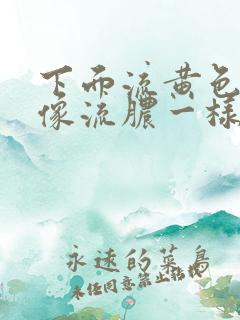 下面流黄色
像流脓一样
永远的菜鸟
未经同意禁止转载